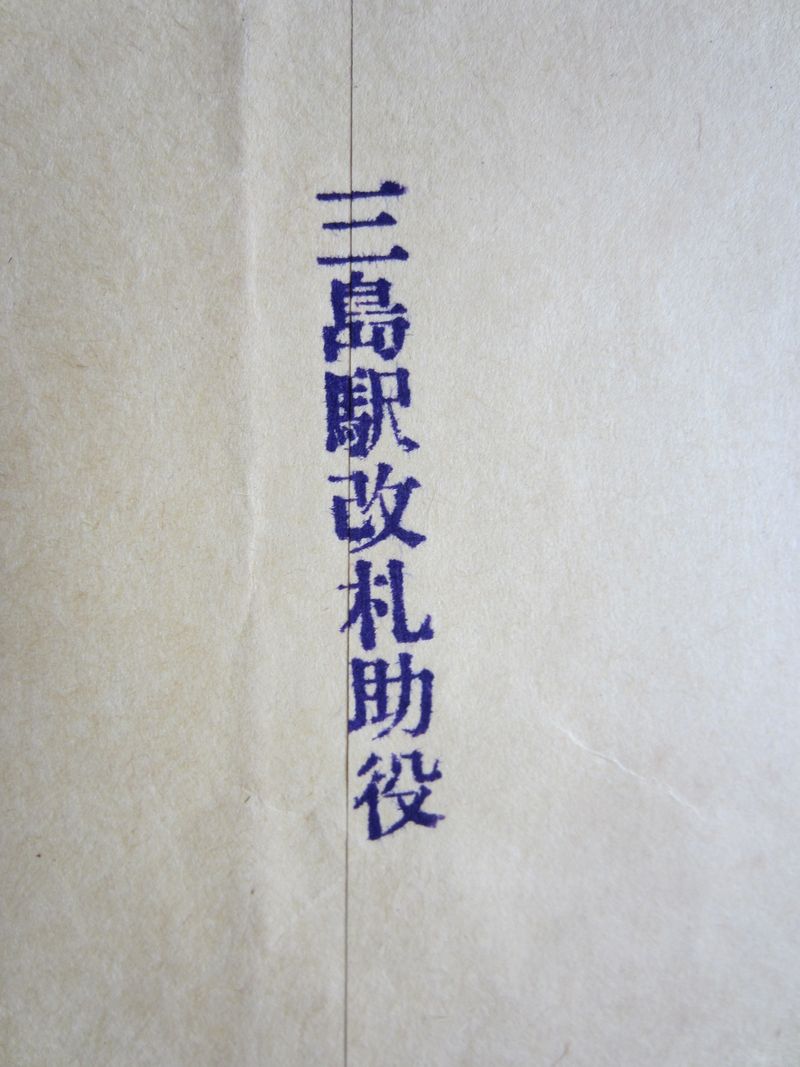 三島駅改札助役